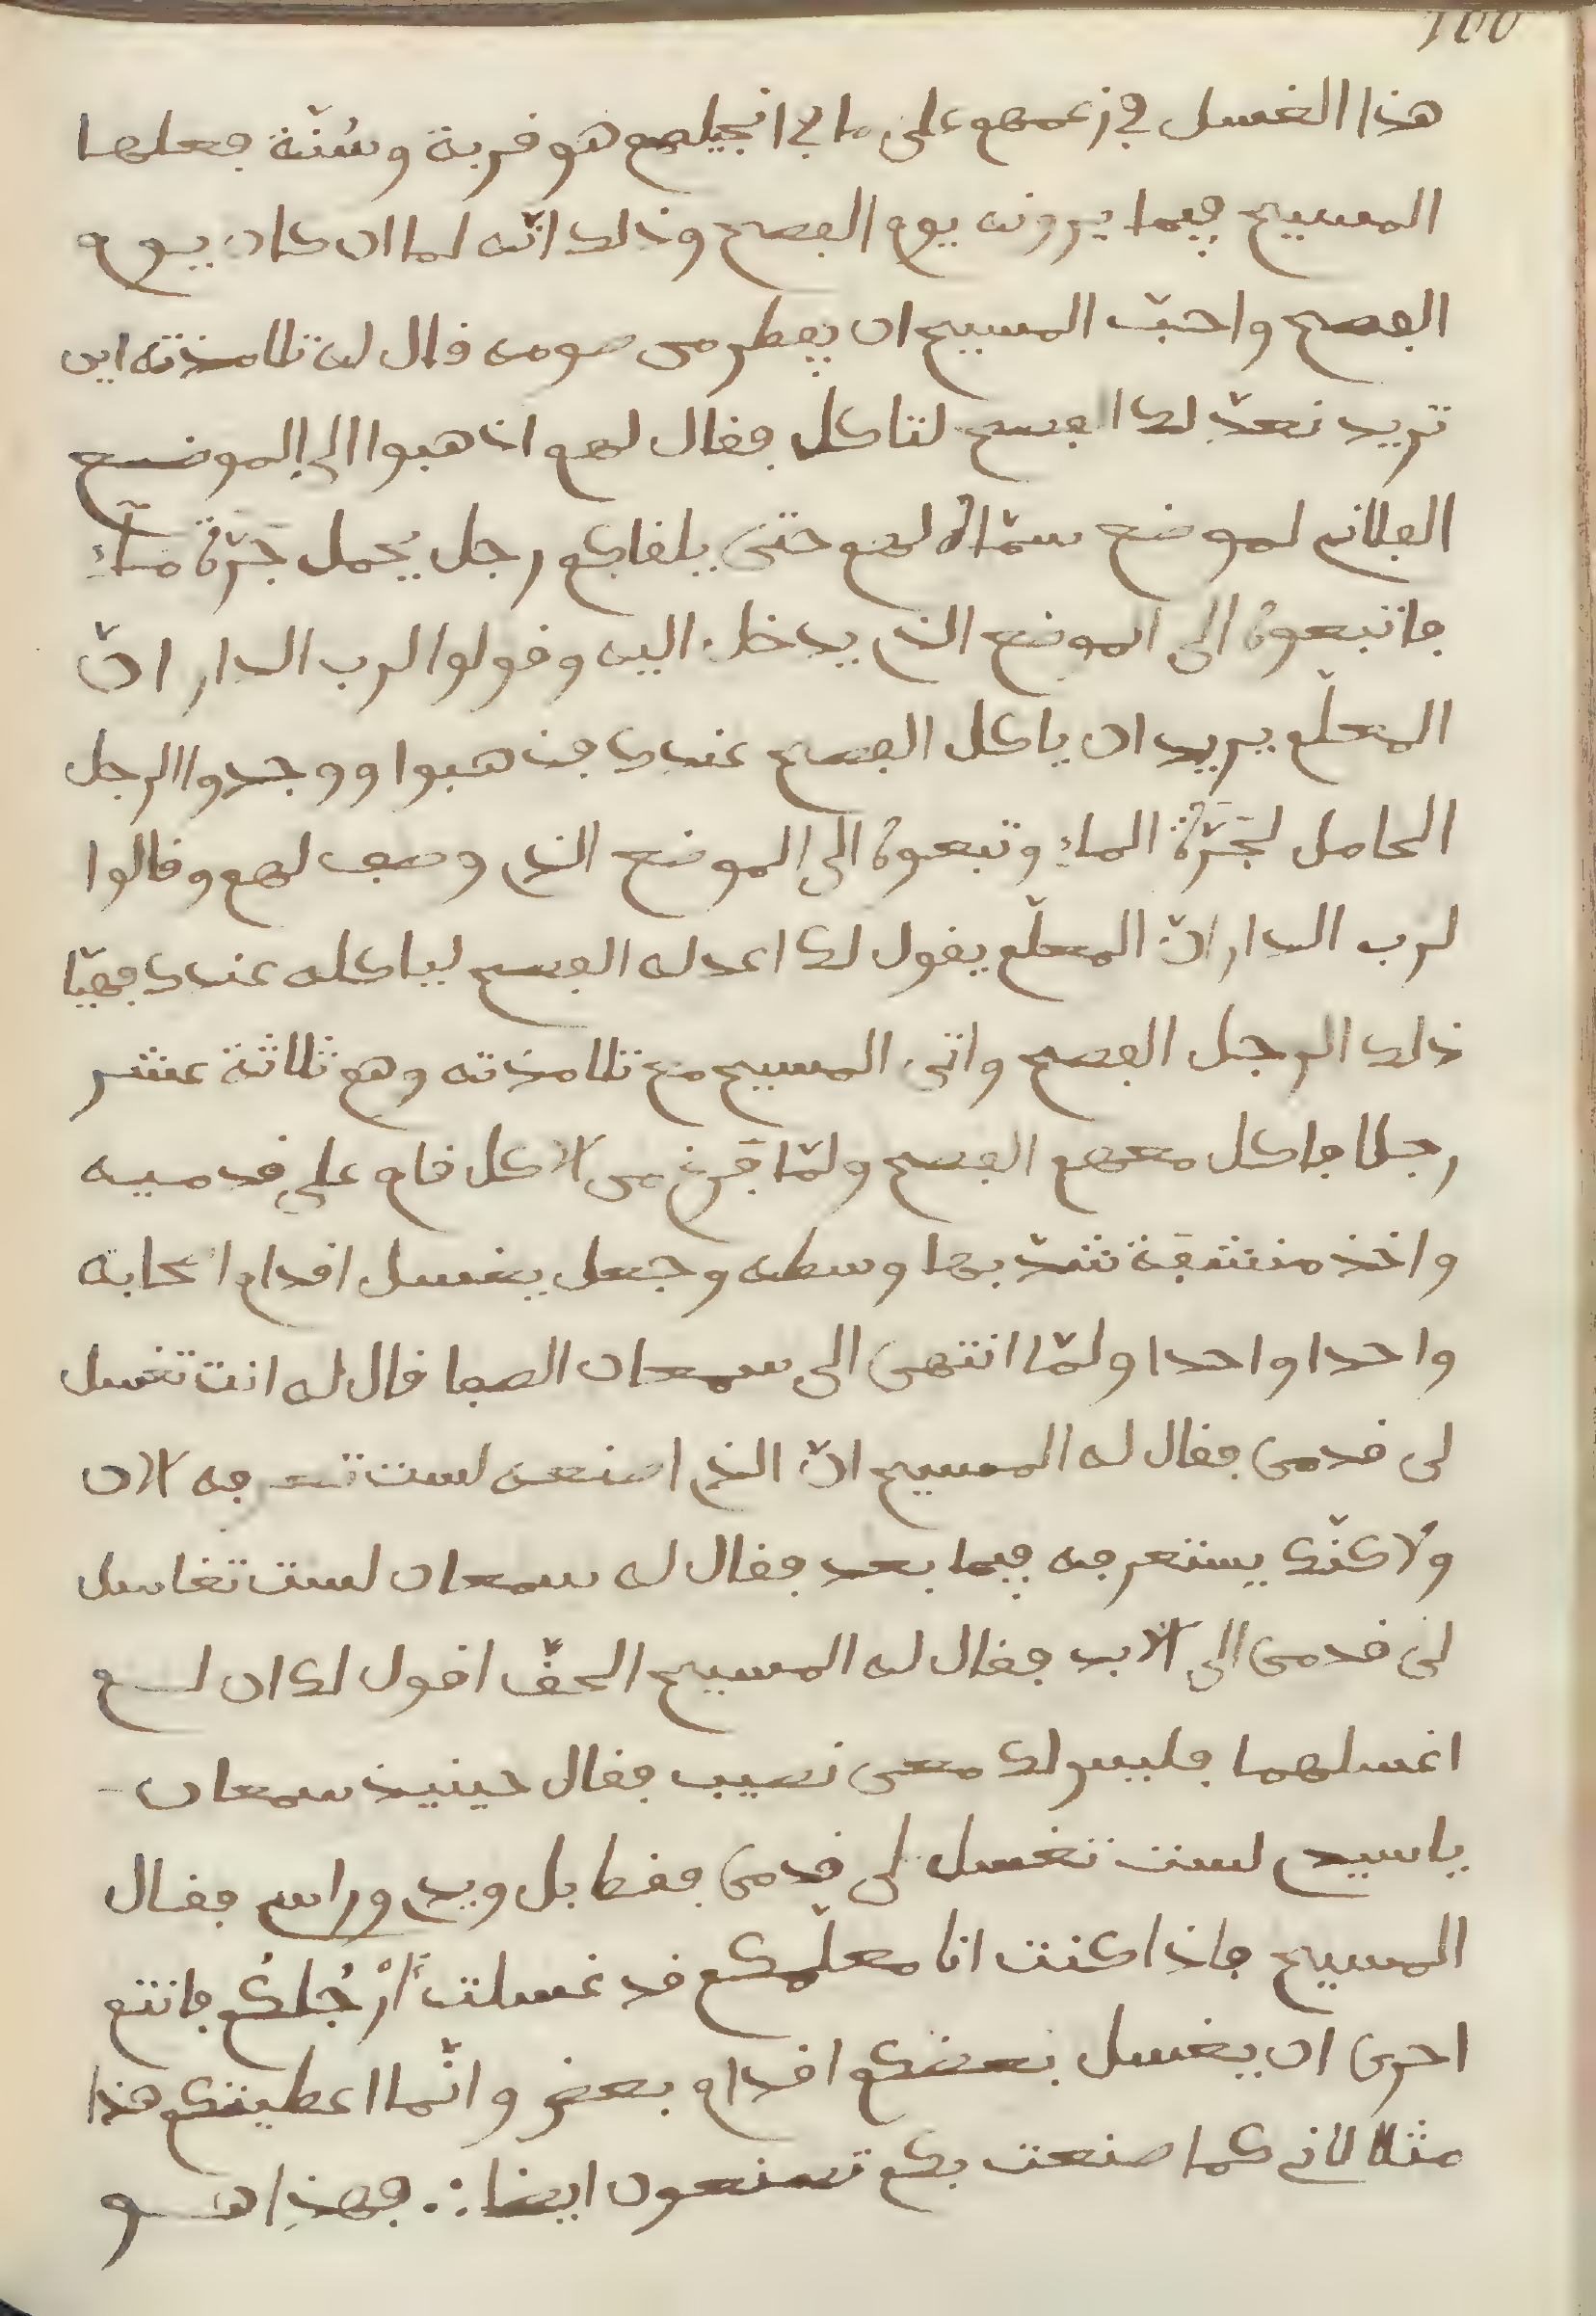 100
هذا الغسل في زعمهم على ما في انجيلهم هو قربة وسُنّة جعلها
المسيح فيما يرونه يوم الفصح وذلك انّه لما ان كان يوم
الفصح واحبّ المسيح ان يفطر من صومه قال له تلامذته اين
تريد نعدّ لك الفسح لتاكل فقال لهم اذهبوا الى الموضع
الفلاني لموضع سمّاه لهم حتى يلقاكم رجل يحمل جَرّة ماءٍ
فاتبعوه الى الموضع الذي يدخل اليه وقولوا لرب الدار انّ
المعلّم يريد ان ياكل الفصح عندك فذهبوا ووجدوا الرجل
الحامل لجَرّة الماءِ وتبعوه الى الموضع الذي وصف لهم وقالوا
لرب الدار انّ المعلّم يقول لك اعد له الفسح لياكله عندك فهيّا
ذلك الرجل الفصح واتى المسيح مع تلامذته وهم ثلاثة عشر
رجلا فاكل معهم الفصح ولمّا فَرغ من الاكل قام على قدميه
واخذ منشفة شدّ بها وسطه وجعل يغسل اقدام اصحابه
واحدا واحدا ولمّا انتهى الى سمعان الصفا قال له انت تغسل
لى قدمى فقال له المسيح انّ الذي اصنعه لست تعرفه الان
ولاكنّك يستعرفه فيما بعد فقال له سمعان لست تغاسل
لى قدمى الى الابد فقال له المسيح الحقّ اقول لك ان لم
اغسلهما فليس لك معى نصيب فقال حينيذ سمعان
يا سيدي لست تغسل لى قدمى فقط بل ويدي وراسي فقال
المسيح فاذا كنت انا معلّمكم قد غسلت أَرْجُلكُم فانتم
احرى ان يغسل بعضكم اقدام بعض وانّما اعطيتكم هذا
مثلا لاني كما صنعت بكم تصنعون ايضا ∴ فهذا هو